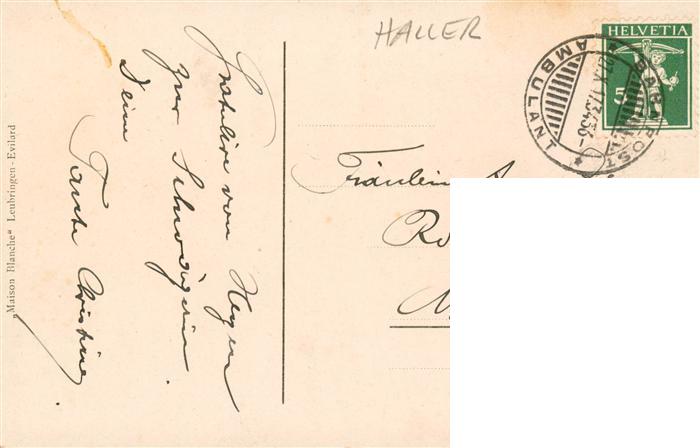 HALLER
HELVETIA
5
AMBULANT
BAHNPOST
Gratuliere von Herzen
zur Schwägerin
Deine
Tante Christine.
Fräulein
„Maison Blanche“ Leubringen - Evilard